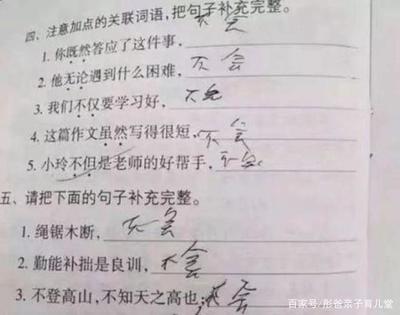 四、注意加点的关联词语，把句子补充完整。
1. 你既然答应了这件事，不会
2. 他无论遇到什么困难，不会
3. 我们不仅要学习好，不会
4. 这篇作文虽然写得很短，不会
5. 小玲不但是老师的好帮手，不会。
五、请把下面的句子补充完整。
1. 绳锯木断，不会
2. 勤能补拙是良训，不会
3. 不登高山，不知天之高也；不会
百家号/彤爸亲子育儿堂